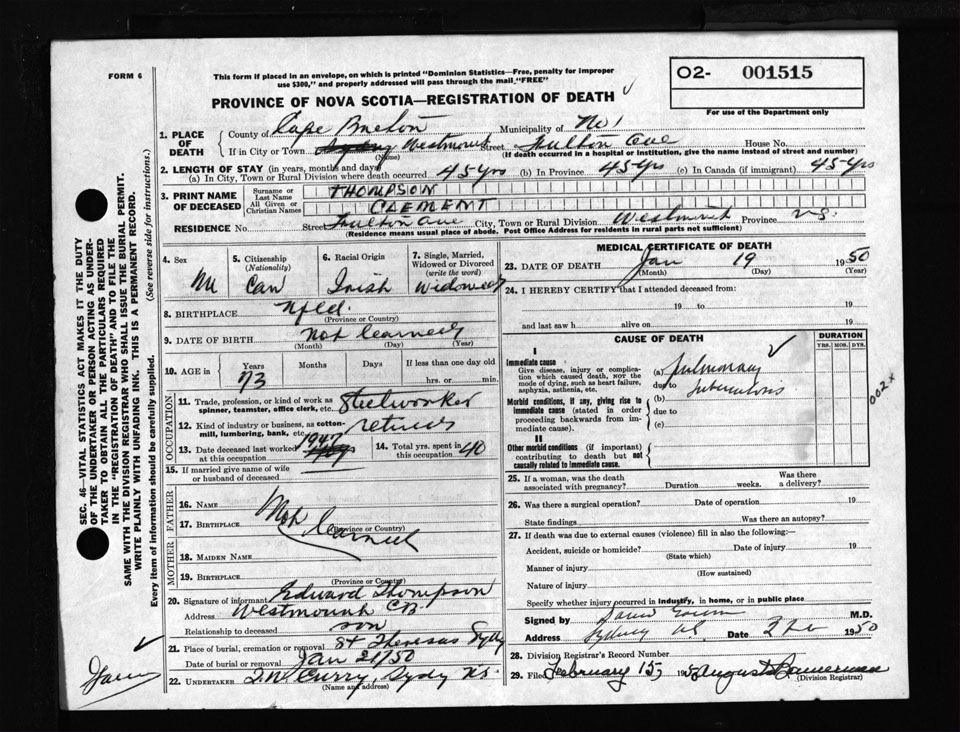 FORM 6
This form if placed in an envelope, on which is printed "Dominion Statistics—Free, penalty for improper
use $300," and properly addressed will pass through the mail "FREE"
O2- 001515
For use of the Department only
PROVINCE OF NOVA SCOTIA—REGISTRATION OF DEATH
SEC. 46—VITAL STATISTICS ACT MAKES IT THE DUTY
OF THE UNDERTAKER OR PERSON ACTING AS UNDER-
TAKER TO OBTAIN ALL THE PARTICULARS REQUIRED
IN THE "REGISTRATION OF DEATH" AND TO FILE THE
SAME WITH THE DIVISION REGISTRAR WHO SHALL ISSUE THE BURIAL PERMIT.
WRITE PLAINLY WITH UNFADING INK. THIS IS A PERMANENT RECORD.
Every item of information should be carefully supplied. (See reverse side for instructions.)
1. PLACE OF DEATH
County of Cape Breton Municipality of No 1
If in City or Town Sydney Westmount Street Fulton Ave House No.
(Name) (If death occurred in a hospital or institution, give the name instead of street and number)
2. LENGTH OF STAY (in years, months and days)
(a) In City, Town or Rural Division where death occurred 45 yrs (b) In Province 45 yrs (c) In Canada (if immigrant) 45 yrs
3. PRINT NAME OF DECEASED
Surname or Last Name THOMPSON
All Given or Christian Names CLEMENT
RESIDENCE No. Street Fulton Ave City, Town or Rural Division Westmount Province N.S.
(Residence means usual place of abode. Post Office Address for residents in rural parts not sufficient)
4. Sex M
5. Citizenship (Nationality) Can
6. Racial Origin Irish
7. Single, Married, Widowed or Divorced (write the word) Widowed
8. BIRTHPLACE Nfld.
(Province or Country)
9. DATE OF BIRTH Not learned
(Month) (Day) (Year)
10. AGE in Years 73 Months Days If less than one day old
hrs. or min.
OCCUPATION
11. Trade, profession, or kind of work as
spinner, teamster, office clerk, etc. Steelworker
12. Kind of industry or business, as cotton-
mill, lumbering, bank, etc. retired
13. Date deceased last worked at this occupation 1947
14. Total yrs. spent in this occupation 40
15. If married give name of wife
or husband of deceased
FATHER
16. NAME Not learned
17. BIRTHPLACE
(Province or Country)
MOTHER
18. MAIDEN NAME
19. BIRTHPLACE
(Province or Country)
20. Signature of informant Edward Thompson
Address Westmount CB
Relationship to deceased son
21. Place of burial, cremation or removal St Theresas Sydy
Date of burial or removal Jan 21/50
22. UNDERTAKER T.W. Curry, Sydy N.S.
(Name and address)
MEDICAL CERTIFICATE OF DEATH
23. DATE OF DEATH Jan 19 1950
(Month) (Day) (Year)
24. I HEREBY CERTIFY that I attended deceased from:
19 to 19
and last saw h alive on 19
CAUSE OF DEATH
DURATION
YRS. MOS. DYS.
I
Immediate cause
Give disease, injury or complica-
tion which caused death, NOT the
mode of dying, such as heart failure,
asphyxia, asthenia, etc.
(a) Pulmonary
due to Tuberculosis
002x
Morbid conditions, if any, giving rise to
immediate cause (stated in order
proceeding backwards from im-
mediate cause).
(b)
due to
(c)
II
Other morbid conditions (if important)
contributing to death but not
causally related to immediate cause.
25. If a woman, was the death
associated with pregnancy? Duration weeks. Was there a delivery?
26. Was there a surgical operation? Date of operation 19
State findings Was there an autopsy?
27. If death was due to external causes (violence) fill in also the following:
Accident, suicide or homicide? Date of injury 19
(State which)
Manner of injury
(How sustained)
Nature of injury
Specify whether injury occurred in industry, in home, or in public place
Signed by M.D.
Address Sydney NS Date 2 1950
28. Division Registrar's Record Number
29. Filed February 15, 1950
(Division Registrar)